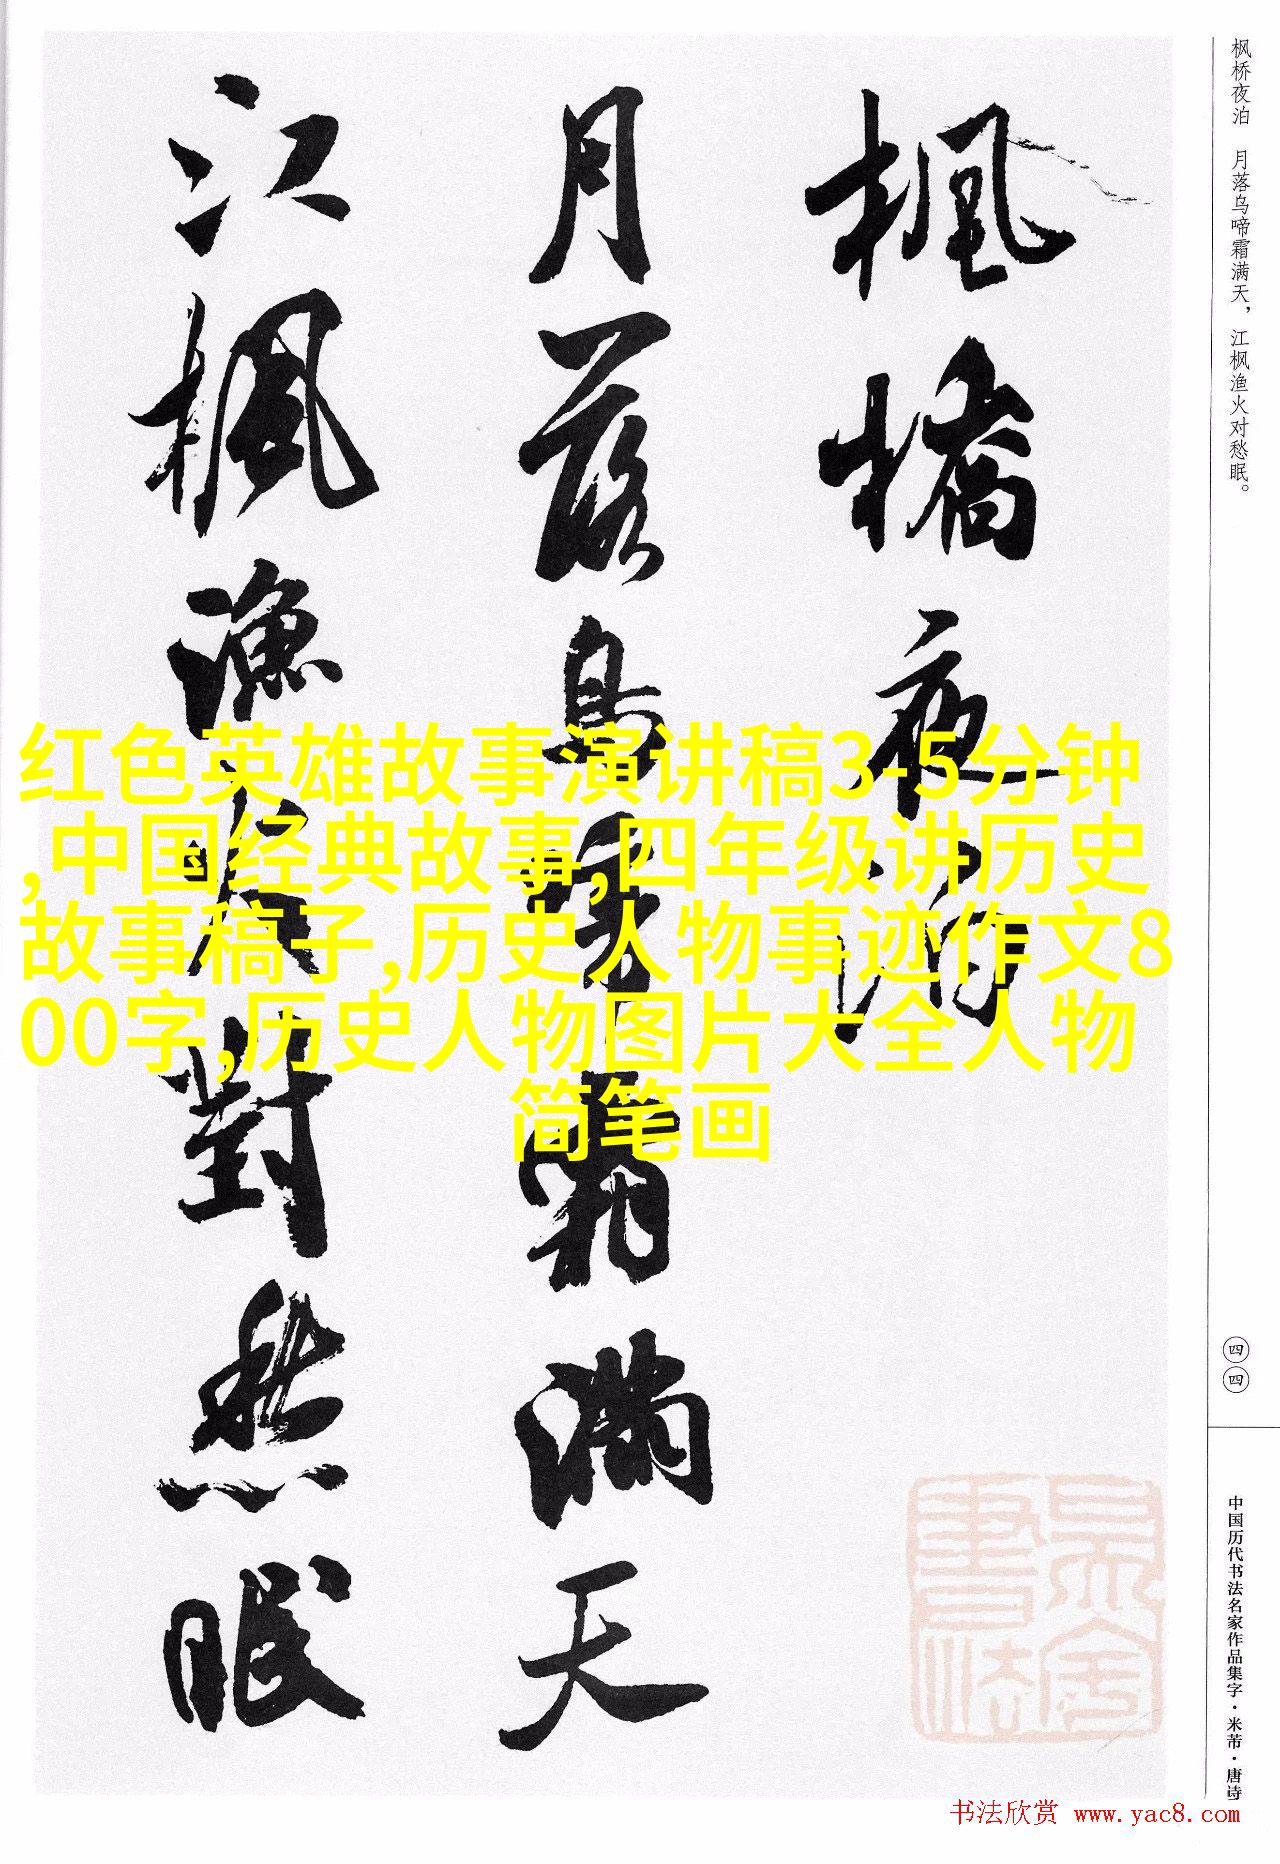 枫桥夜泊　月落乌啼霜满天，江枫渔火对愁眠。
楓橋夜泊
月落烏啼霜滿天
江楓漁火對愁眠
红色英雄故事演讲稿3-5分钟
,中国经典故事,四年级讲历史
故事稿子,历史人物事迹作文8
00字,历史人物图片大全人物
简笔画
四四
中国历代书法名家作品集字·米芾·唐诗
书法欣赏 www.yac8.com